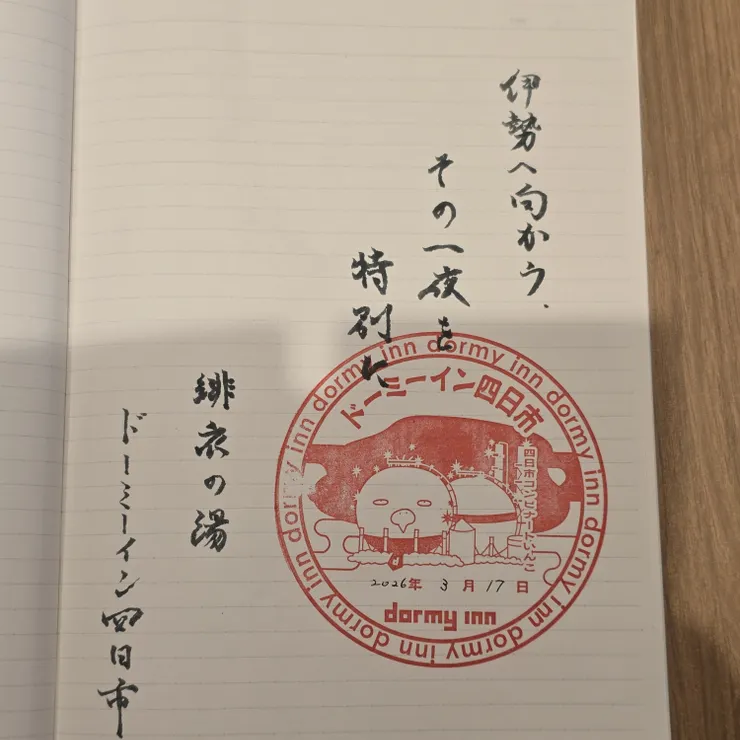 伊勢へ向かう、
その一夜を
特別に
緋衣の湯
ドーミーイン四日市
dormy inn dormy inn dormy inn dormy inn dormy inn dormy inn dormy inn
ドーミーイン四日市
四日市コンビナートいんこ
2026年 3月17日
dormy inn